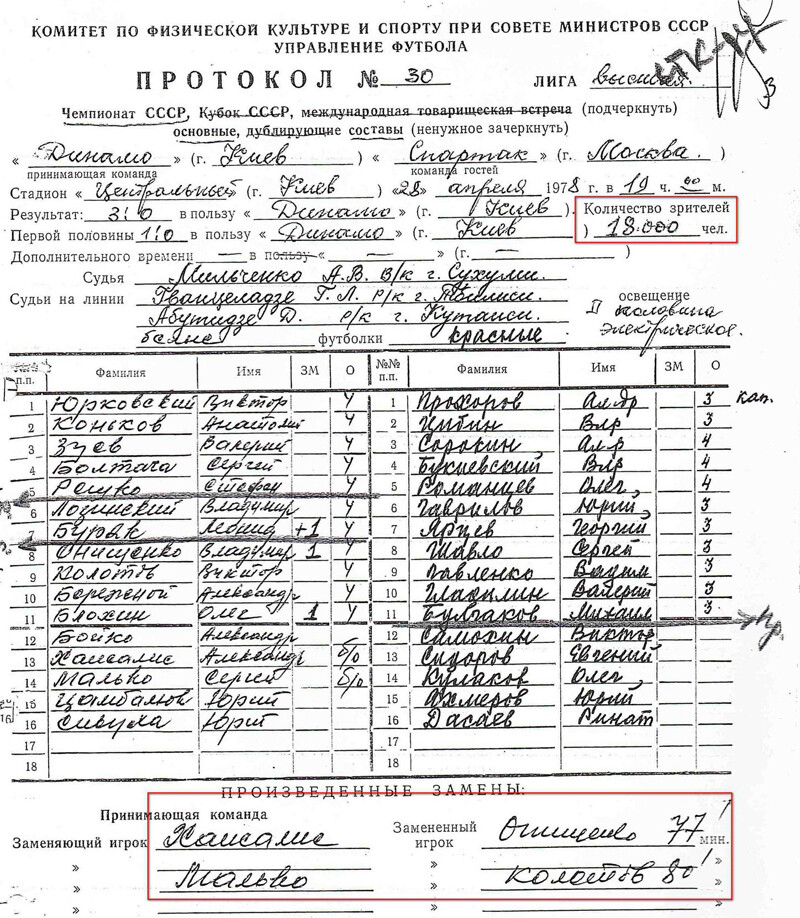 КОМИТЕТ ПО ФИЗИЧЕСКОЙ КУЛЬТУРЕ И СПОРТУ ПРИ СОВЕТЕ МИНИСТРОВ СССР
УПРАВЛЕНИЕ ФУТБОЛА
ПРОТОКОЛ № 30 ЛИГА высшая
Чемпионат СССР, Кубок СССР, международная товарищеская встреча (подчеркнуть)
основные, дублирующие составы (ненужное зачеркнуть)
« Динамо » (г. Киев ) « Спартак » (г. Москва. )
принимающая команда команда гостей
Стадион « Центральный (г. Киев ) «28» апреля 1978 г. в 19 ч. 00 м.
Результат: 3:0 в пользу « Динамо » (г. Киев ). Количество зрителей
Первой половины 1:0 в пользу « Динамо » (г. Киев ) 18.000 чел.
Дополнительного времени — в пользу « — » (г. — )
Судья Мильченко А.В. в/к г. Сухуми.
Судьи на линии Гванцеладзе Г. Л. р/к г. Тбилиси. освещение
Абутидзе Д. р/к г. Кутаиси. II половина
футболки красные электрическое.
п.п. Фамилия Имя ЗМ О №№ п.п. Фамилия Имя ЗМ О
1 Юрковский Виктор 4 1 Прохоров Ал-др 3 кап.
2 Коньков Анатолий 4 2 Вл-р 3
3 Зуев Валерий 4 3 Сорокин Ал-р 4
4 Балтача Сергей 4 4 Букиевский Вл-р 4
5 Решко Стефан 4 5 Романцев Олег 4
6 Лозинский Владимир 6 Гаврилов Юрий 3
7 Буряк Леонид +1 4 7 Ярцев Георгий 3
8 Онищенко Владимир 1 4 8 Шавло Сергей 3
9 Колотов Виктор 4 9 Павленко Вадим 3
10 Бережной Александр 4 10 Гладилин Валерий 3
11 Блохин Олег 1 4 11 Булгаков Михаил 3
12 Бойко Александр 12 Самохин Виктор
13 Хапсалис Александр б/о 13 Сидоров Евгений
14 Малько Сергей б/о 14 Кулаков Олег
15 Цымбалюк Юрий 15 Ахмеров Юрий
16 Сивуха Юрий 16 Дасаев Ринат
17 17
18 18
ПРОИЗВЕДЕННЫЕ ЗАМЕНЫ:
Принимающая команда
Заменяющий игрок Хапсалис Замененный игрок Онищенко 77' мин.
» Малько » Колотов 80' »
» » »